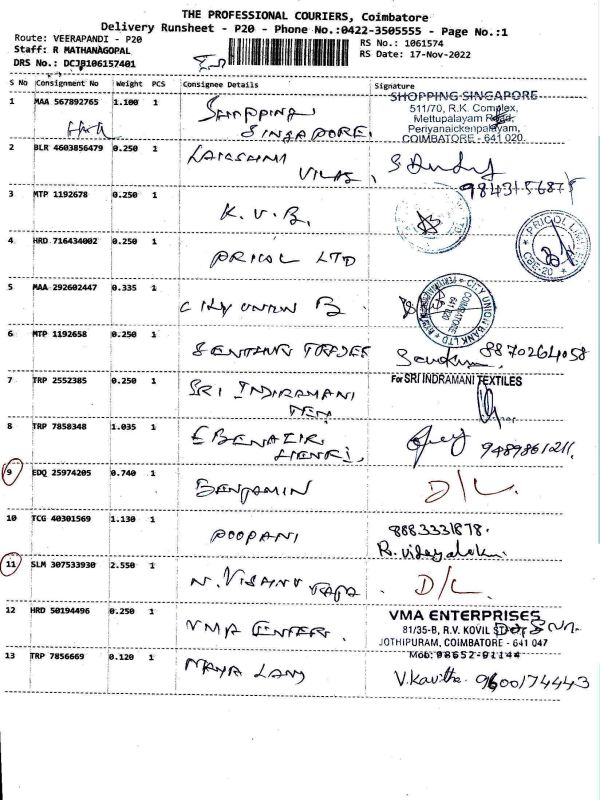 THE PROFESSIONAL COURIERS, Coimbatore
Delivery Runsheet - P20 - Phone No.:0422-3505555 - Page No.:1
Route: VEERAPANDI - P20
Staff: R MATHANAGOPAL
DRS No.: DCJB106157401
RS No.: 1061574
RS Date: 17-Nov-2022
S No Consignment No Weight PCS Consignee Details Signature
1 MAA 567892765 1.100 1 SHOPPING SINGAPORE.
SHOPPING SINGAPORE
511/70, R.K. Complex,
Mettupalayam Road,
Periyanaickenpalayam,
COIMBATORE - 641 020.
2 BLR 4603856479 0.250 1 LAKSHMI VILAS,
9843156875
3 MTP 1192678 0.250 1 K.V.B.
4 HRD 716434002 0.250 1 PRICOL LTD
PRICOL LIMITED
CBE-20
5 MAA 292602447 0.335 1 CITY UNION B
CITY UNION BANK LTD
COIMBATORE
6 MTP 1192658 0.250 1 SENTHUR TRADES
8870264058
7 TRP 2552385 0.250 1 SRI INDIRAMANI TEX
For SRI INDRAMANI TEXTILES
8 TRP 7858348 1.035 1 EBENAZIR HENRI,
9489861211.
9 EDQ 25974205 0.740 1 BENJAMIN D/L.
10 TCG 40301569 1.130 1 POOPANI
8883331878.
R. vidayalakmi
11 SLM 307533930 2.550 1 N. VISHNU D/L.
12 HRD 50194496 0.250 1 VMA ENTERP.
VMA ENTERPRISES
81/35-B, R.V. KOVIL
JOTHIPURAM, COIMBATORE - 641 047
Mob: 98652-91144
13 TRP 7856669 0.120 1 MAYA LANY
V. Kavitha. 9600174443